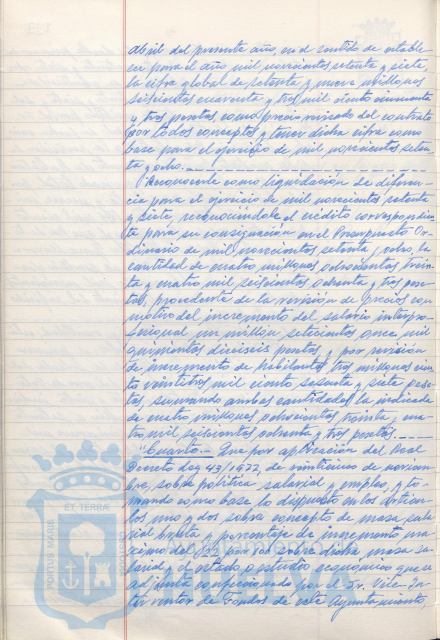 abril del presente año, en el sentido de estable-
cer para el año mil novecientos setenta y siete,
la cifra global de setenta y nueve millones
seiscientos cuarenta y tres mil ciento cincuenta
y tres pesetas como precio revisado del contrato
por todos conceptos y tener dicha cifra como
base para el ejercicio de mil novecientos seten-
ta y ocho.
Reconocerle como liquidación de diferen-
cia para el ejercicio de mil novecientos setenta
y siete, reconociéndole el crédito correspondien-
te para su consignación en el Presupuesto Or-
dinario de mil novecientos setenta y ocho, la
cantidad de cuatro millones ochocientas trein-
ta y cuatro mil seiscientas ochenta y tres pese-
tas, procedente de la revisión de precios con
motivo del incremento del salario interpro-
fesional un millón setecientas once mil
quinientas dieciseis pesetas y por revisión
de incremento de habitantes tres millones cien-
to veintitres mil ciento sesenta y siete pese-
tas, sumando ambas cantidades la indicada
de cuatro millones ochocientas treinta y cua-
tro mil seiscientas ochenta y tres pesetas.
Cuarto.- Que por aplicación del Real
Decreto Ley 43/1977, de veinticinco de noviem-
bre, sobre política salarial y empleo, y to-
mando como base lo dispuesto en los artícu-
los uno y dos sobre concepto de masa sala-
rial bruta y porcentaje de incremento má-
ximo del 22 por 100 sobre dicha masa sa-
larial, y el estado o estudio económico que se
adjunta confeccionado por el Sr. Vice-In-
terventor de Fondos de este Ayuntamiento,
ET TERRAE
PORTUS MARIS
CUSTODIA